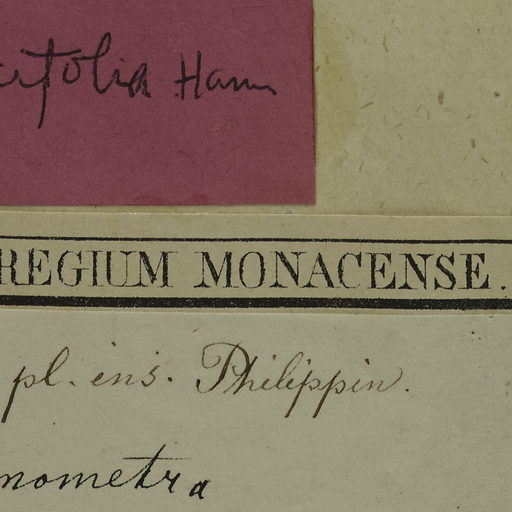 Ham
REGIUM MONACENSE.
pl. ins. Philippin.
nometra